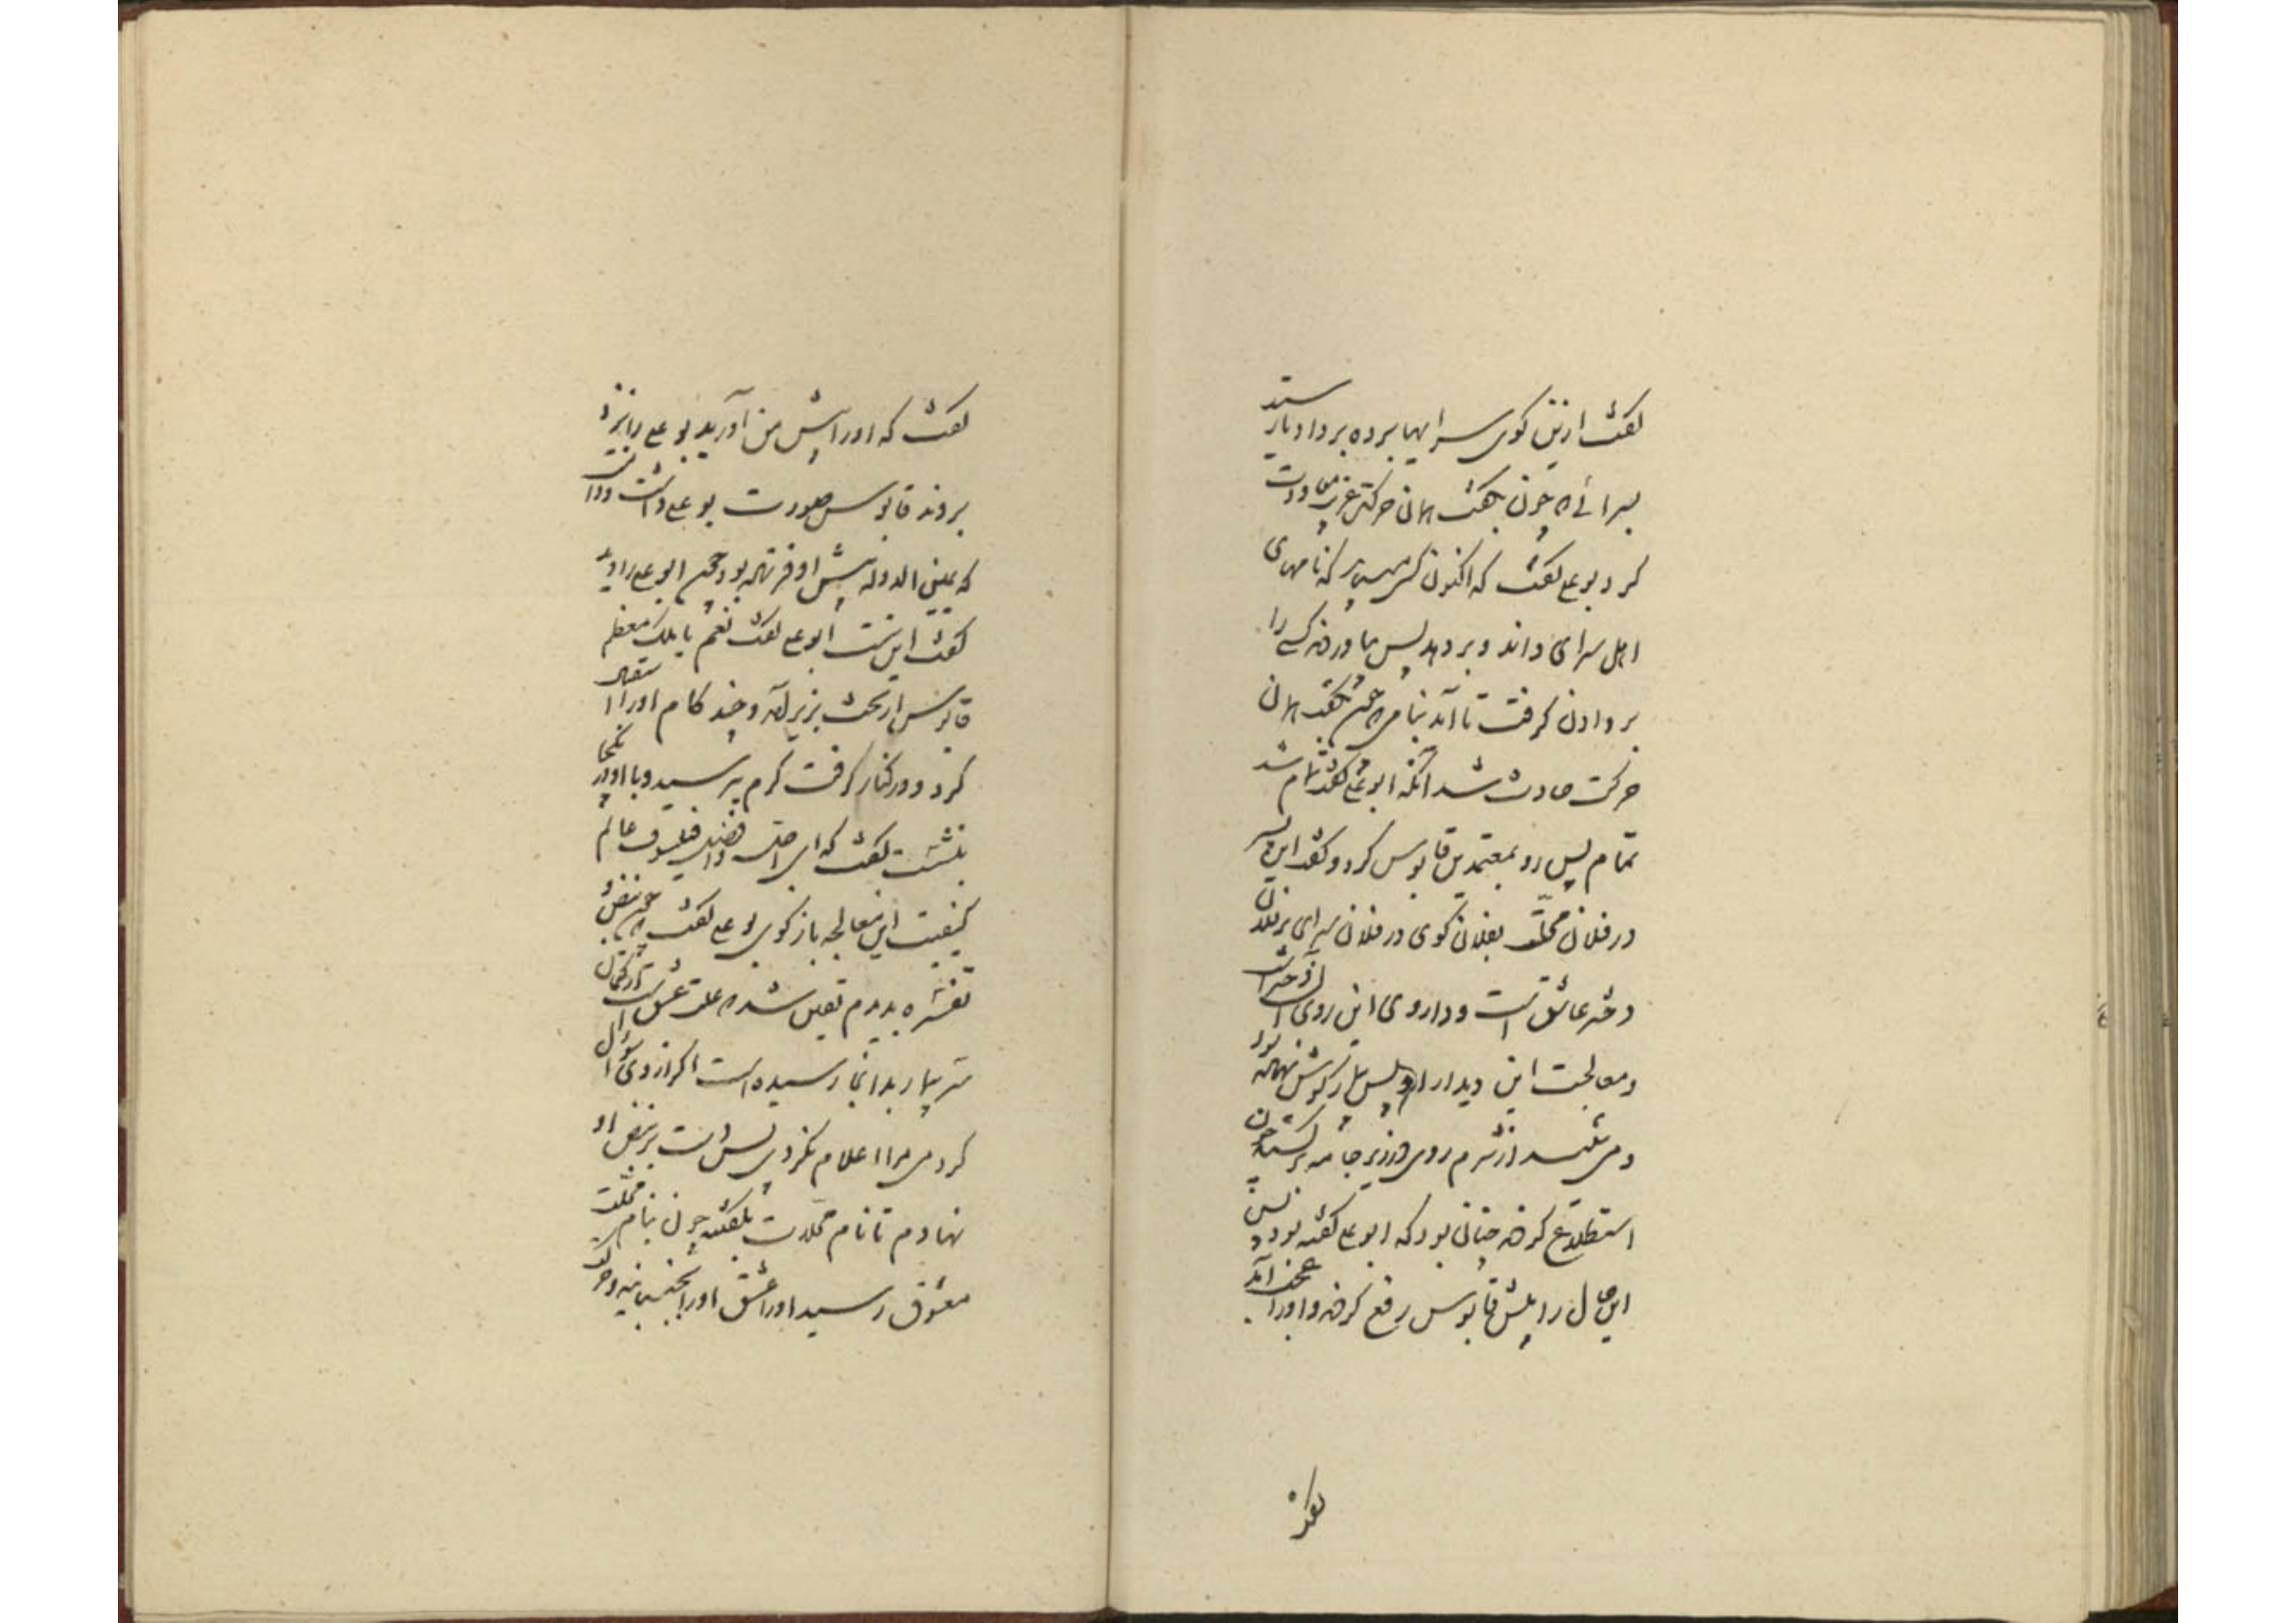 گفت ازین کوی سراهیا برده بردا و باز رسید
بسرائی که چون بگفت همان حرکت غریب معاودت
کرد بوعلی گفت که اکنون کس میباید که نامهای
اهل سرای داند و بردهد پس بیاوردند کسی را
بر دادن گرفت تا آمد بنامی که چون بگفت همان
حرکت حادث شد آنگه ابوعلی گفت تمام شد
تمام پس رو بمعتمدین قابوس کرد و گفت این پسر
در فلان محلت بفلان کوی در فلان سرای بر فلان
دختر عاشق است و داروی این روی آن دختر است
و معالجت این دیدار او پس بیمار گوش نهاده بود
و می شنید از شرم روی در زیر جامه کشید چون
استطلاع کردند چنان بود که ابوعلی گفته بود پس
این حال را پیش قابوس رفع کردند و او را عجب آمد
گفت
گفت که او را پیش من آورید بوعلی را نزد
بردند قابوس صورت بوعلی داشت در آن
که یمین الدوله پیش او فرستاده بود چون ابوعلی را دید
گفت این تست ابوعلی گفت نعم یا ملک معظم
قابوس از تخت بزیر آمد و چند گام او را استقبال
کرد و در کنار گرفت گرم پرسید و با او در یکجا
بنشست گفت که ای اجل و افضل فیلسوف عالم
کیفیت این معالجه بازگوی بوعلی گفت چون نبض و
تفسره بدیدم تعیین شد که علت عشق است و از کتمان
سر بیمار بدانجا رسیده است اگر از وی سؤال
کردمی مرا اعلام نکردی پس دست بر نبض او
نهادم تا نام محلات بگفتند چون بنام محلت
معشوق رسید او را عشق او را بجنبانید و حرکت